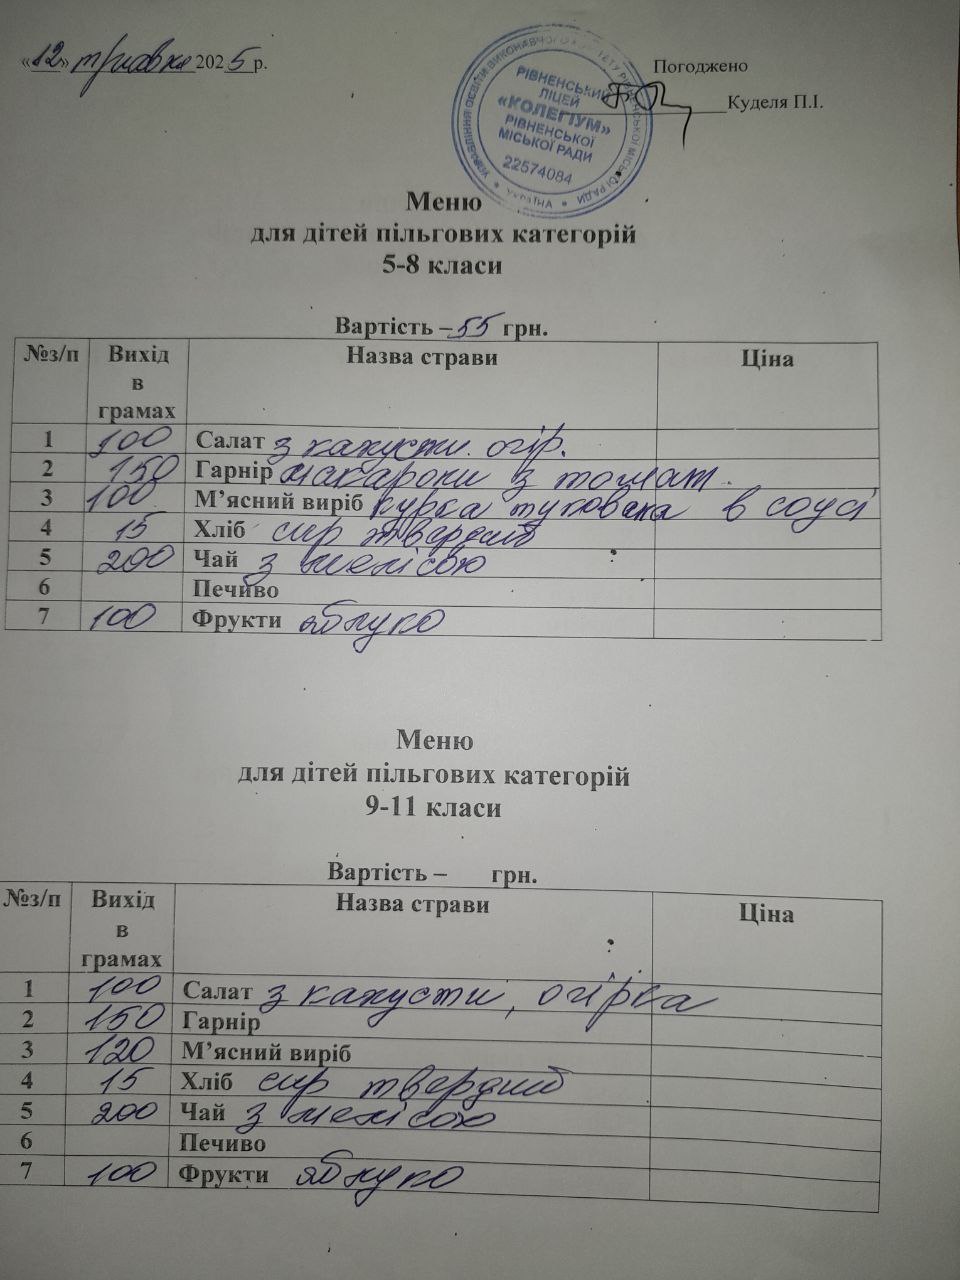 «12» травня 2025 р.
Погоджено
Куделя П.І.
УПРАВЛІННЯ ОСВІТИ ВИКОНАВЧОГО КОМІТЕТУ РІВНЕНСЬКОЇ МІСЬКОЇ РАДИ
УКРАЇНА
РІВНЕНСЬКИЙ
ЛІЦЕЙ
«КОЛЕГІУМ»
РІВНЕНСЬКОЇ
МІСЬКОЇ РАДИ
22574084
Меню
для дітей пільгових категорій
5-8 класи
Вартість – 55 грн.
№з/п Вихід в грамах Назва страви Ціна
1 100 Салат з капусти. огір.
2 150 Гарнір макарони з томат.
3 100 М’ясний виріб курка тушована в соусі
4 15 Хліб сир твердий
5 200 Чай з мелісою
6 Печиво
7 100 Фрукти яблуко
Меню
для дітей пільгових категорій
9-11 класи
Вартість – грн.
№з/п Вихід в грамах Назва страви Ціна
1 100 Салат з капусти, огірка
2 150 Гарнір
3 120 М’ясний виріб
4 15 Хліб сир твердий
5 200 Чай з мелісою
6 Печиво
7 100 Фрукти яблуко